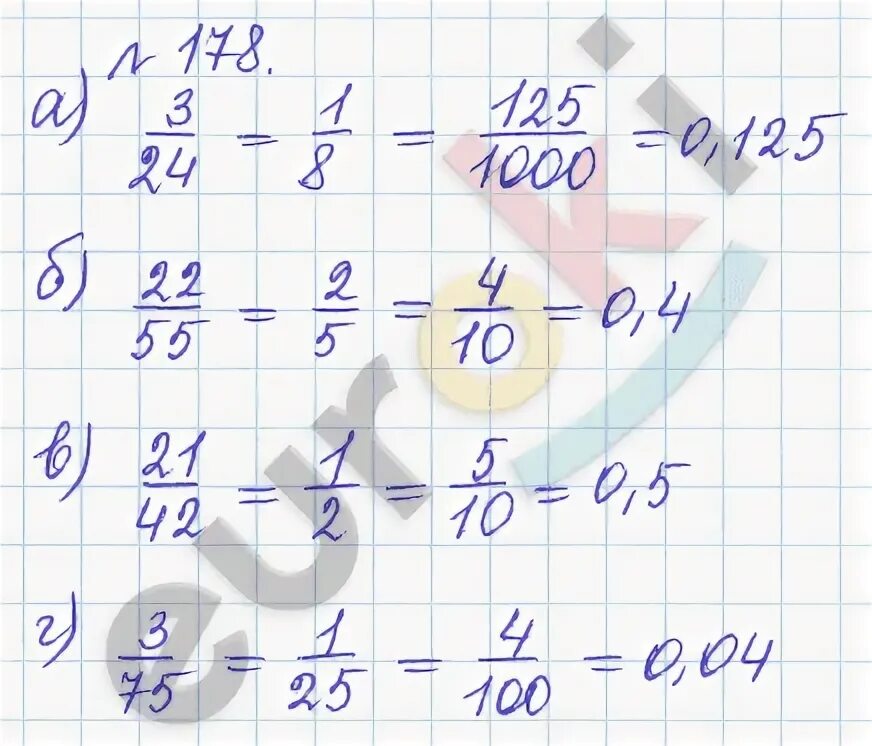 № 178.
а) 3/24 = 1/8 = 125/1000 = 0,125
б) 22/55 = 2/5 = 4/10 = 0,4
в) 21/42 = 1/2 = 5/10 = 0,5
г) 3/75 = 1/25 = 4/100 = 0,04
euroki